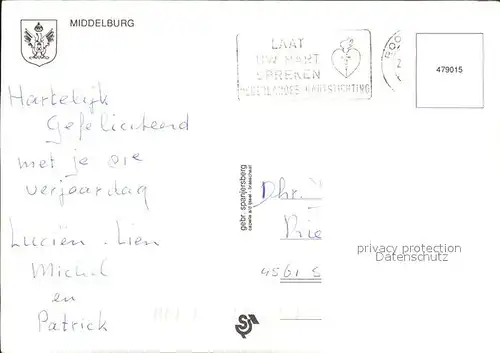 MIDDELBURG
LAAT
UW HART
SPREKEN
NEDERLANDSE HARTSTICHTING
479015
Hartelijk
Gefeliciteerd
met je 81e
verjaardag
Luciën. Lien
Michel
en
Patrick
gebr. spanjersberg
Dhr.
Rie
4561 S
privacy protection
Datenschutz